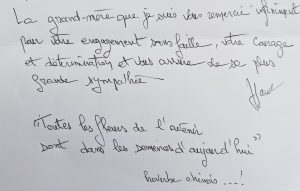 La grand-mère que je suis vous remercie infiniment
pour votre engagement sans faille, votre courage
et détermination et vous assure de sa plus
grande sympathie
"Toutes les fleurs de l'avenir
sont dans les semences d'aujourd'hui"
Proverbe chinois...!